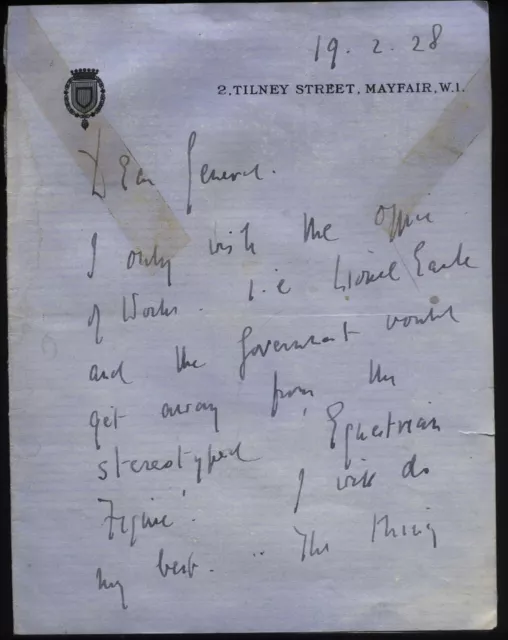 19. 2. 28
2, TILNEY STREET, MAYFAIR, W.1.
Dear General.
I only wish the Office
of Works. i.e Lionel Earle
and the Government would
get away from the
stereotyped 'Equestrian
Figure'. I will do
my best. .. The thing